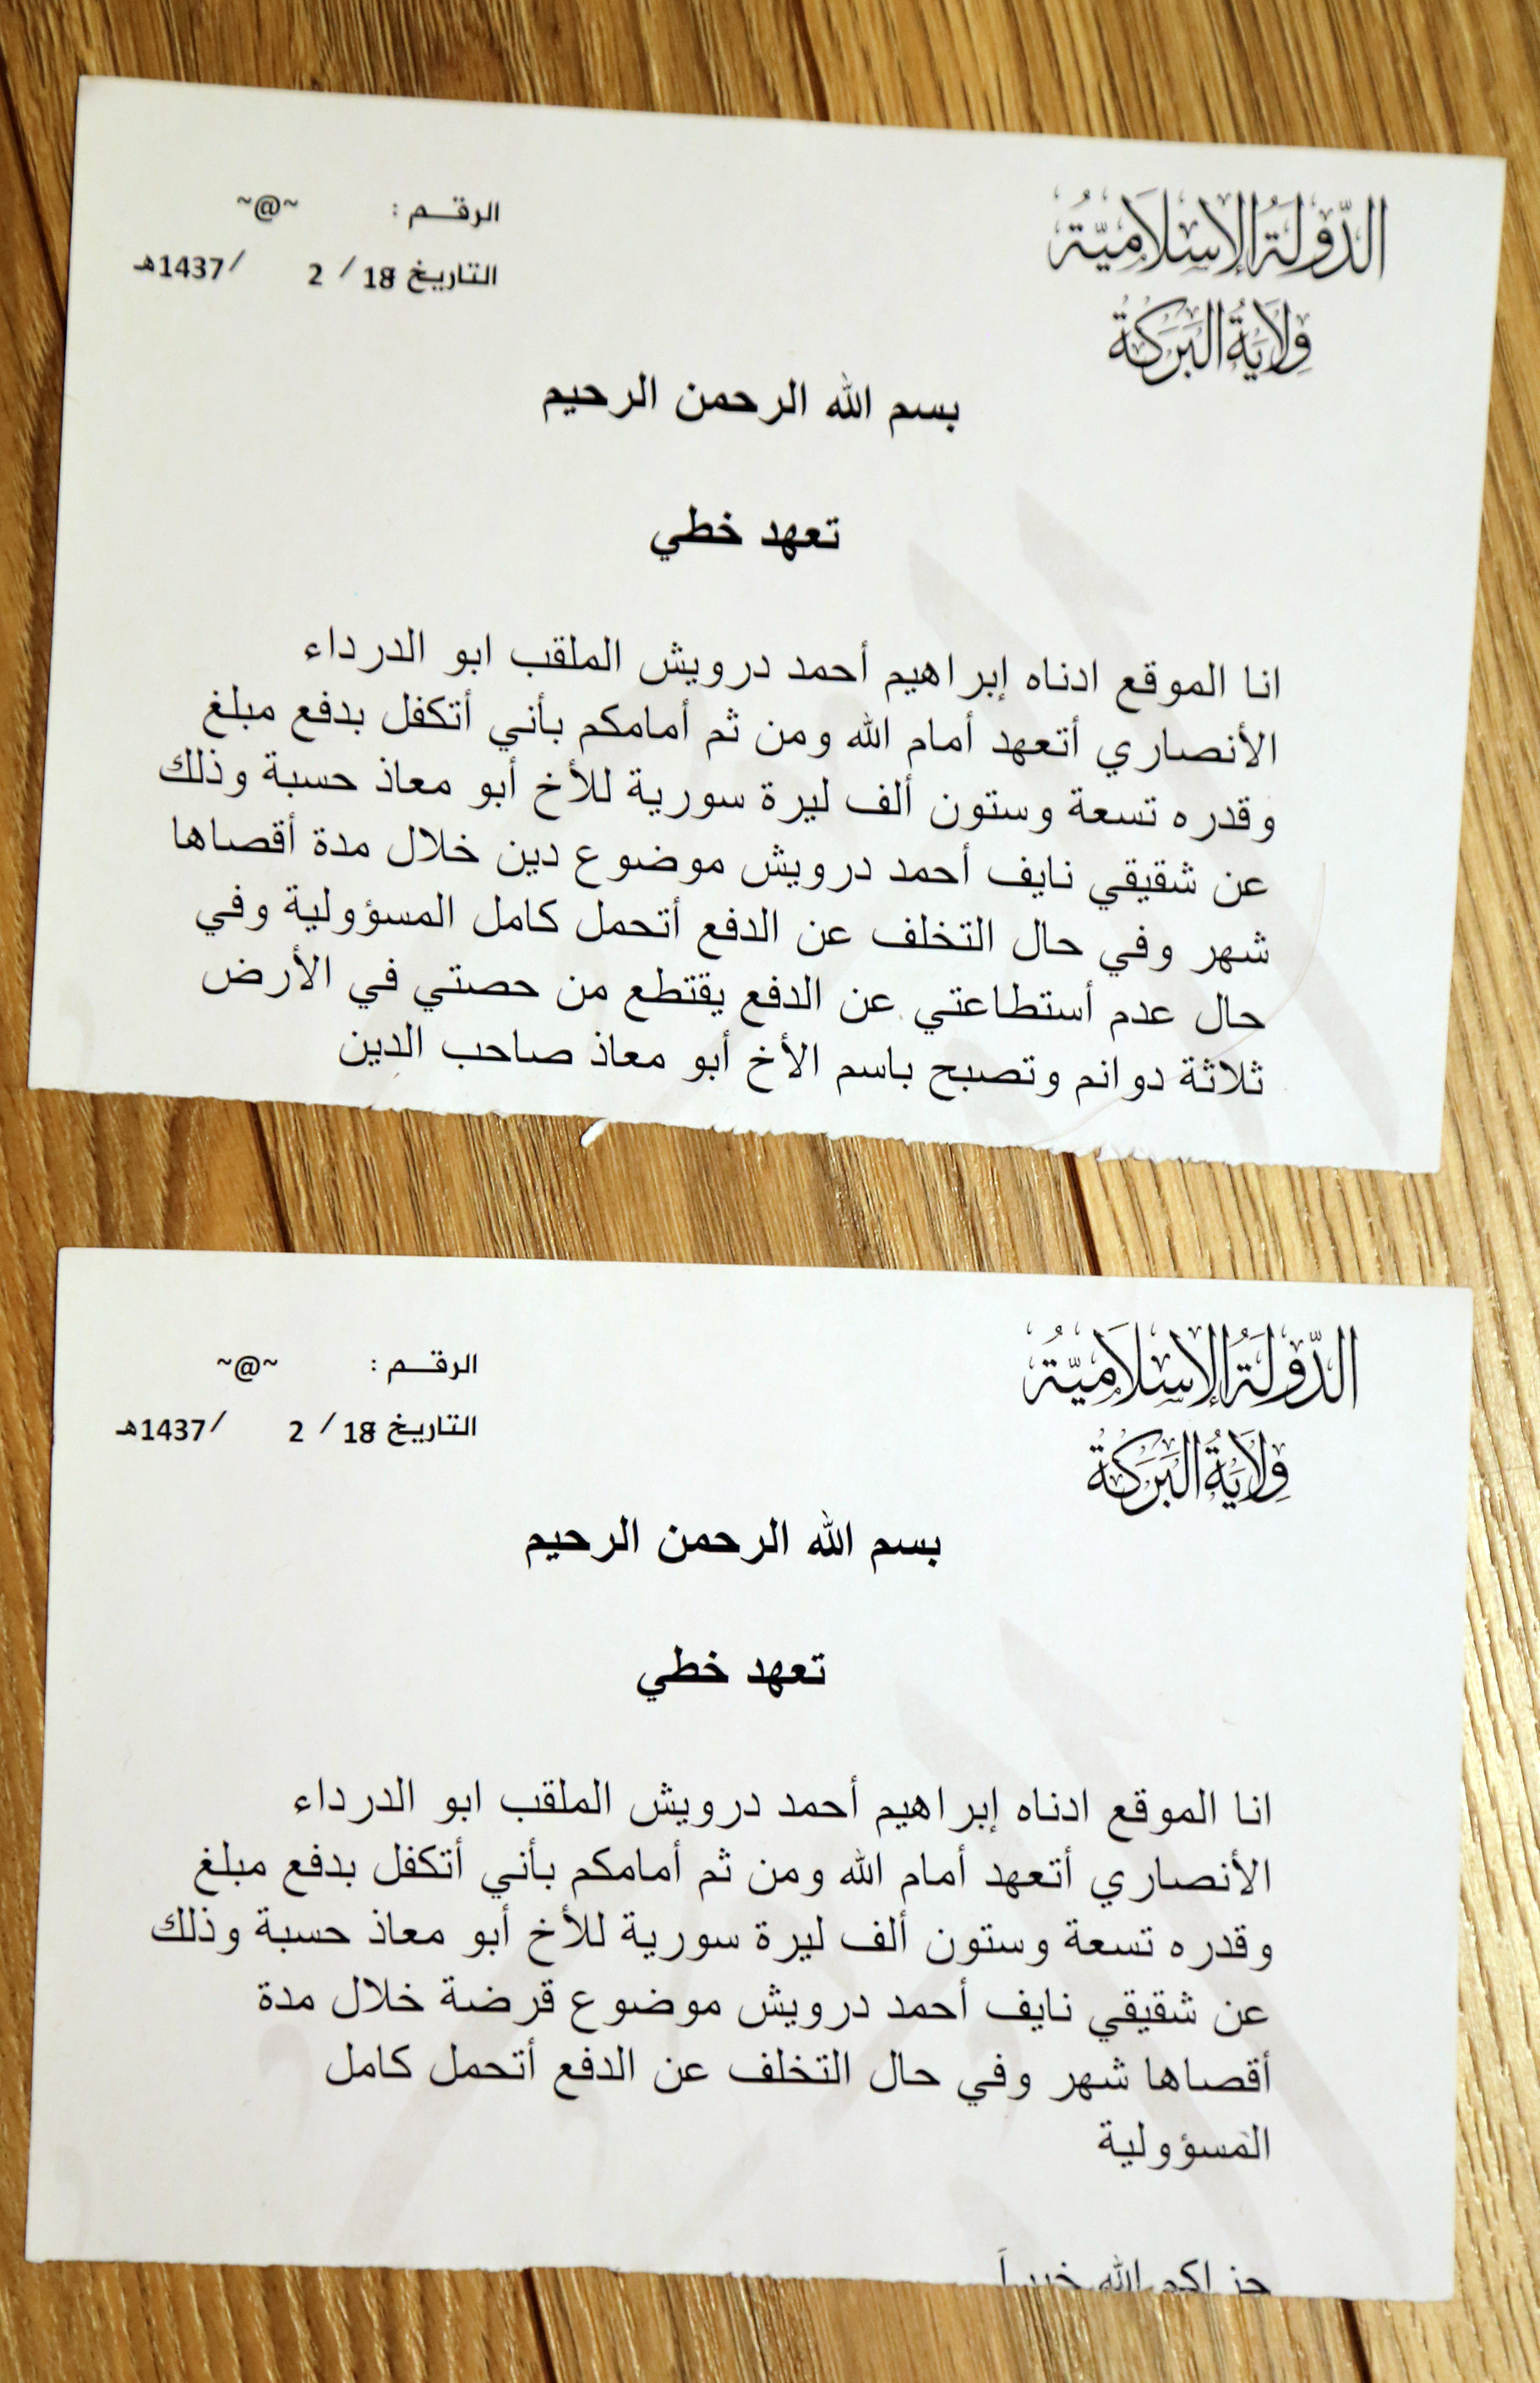 الدّولَةُ الإسْلاميّةُ
وِلَايَةُ البَرَكَة
الرقـــم : ~@~
التاريخ 18 / 2 /1437هـ
بسم الله الرحمن الرحيم
تعهد خطي
انا الموقع ادناه إبراهيم أحمد درويش الملقب ابو الدرداء
الأنصاري أتعهد أمام الله ومن ثم أمامكم بأني أتكفل بدفع مبلغ
وقدره تسعة وستون ألف ليرة سورية للأخ أبو معاذ حسبة وذلك
عن شقيقي نايف أحمد درويش موضوع دين خلال مدة أقصاها
شهر وفي حال التخلف عن الدفع أتحمل كامل المسؤولية وفي
حال عدم أستطاعتي عن الدفع يقتطع من حصتي في الأرض
ثلاثة دوانم وتصبح باسم الأخ أبو معاذ صاحب الدين
الدّولَةُ الإسْلاميّةُ
وِلَايَةُ البَرَكَة
الرقـــم : ~@~
التاريخ 18 / 2 /1437هـ
بسم الله الرحمن الرحيم
تعهد خطي
انا الموقع ادناه إبراهيم أحمد درويش الملقب ابو الدرداء
الأنصاري أتعهد أمام الله ومن ثم أمامكم بأني أتكفل بدفع مبلغ
وقدره تسعة وستون ألف ليرة سورية للأخ أبو معاذ حسبة وذلك
عن شقيقي نايف أحمد درويش موضوع قرضة خلال مدة
أقصاها شهر وفي حال التخلف عن الدفع أتحمل كامل
المسؤولية
جزاكم الله خيراً